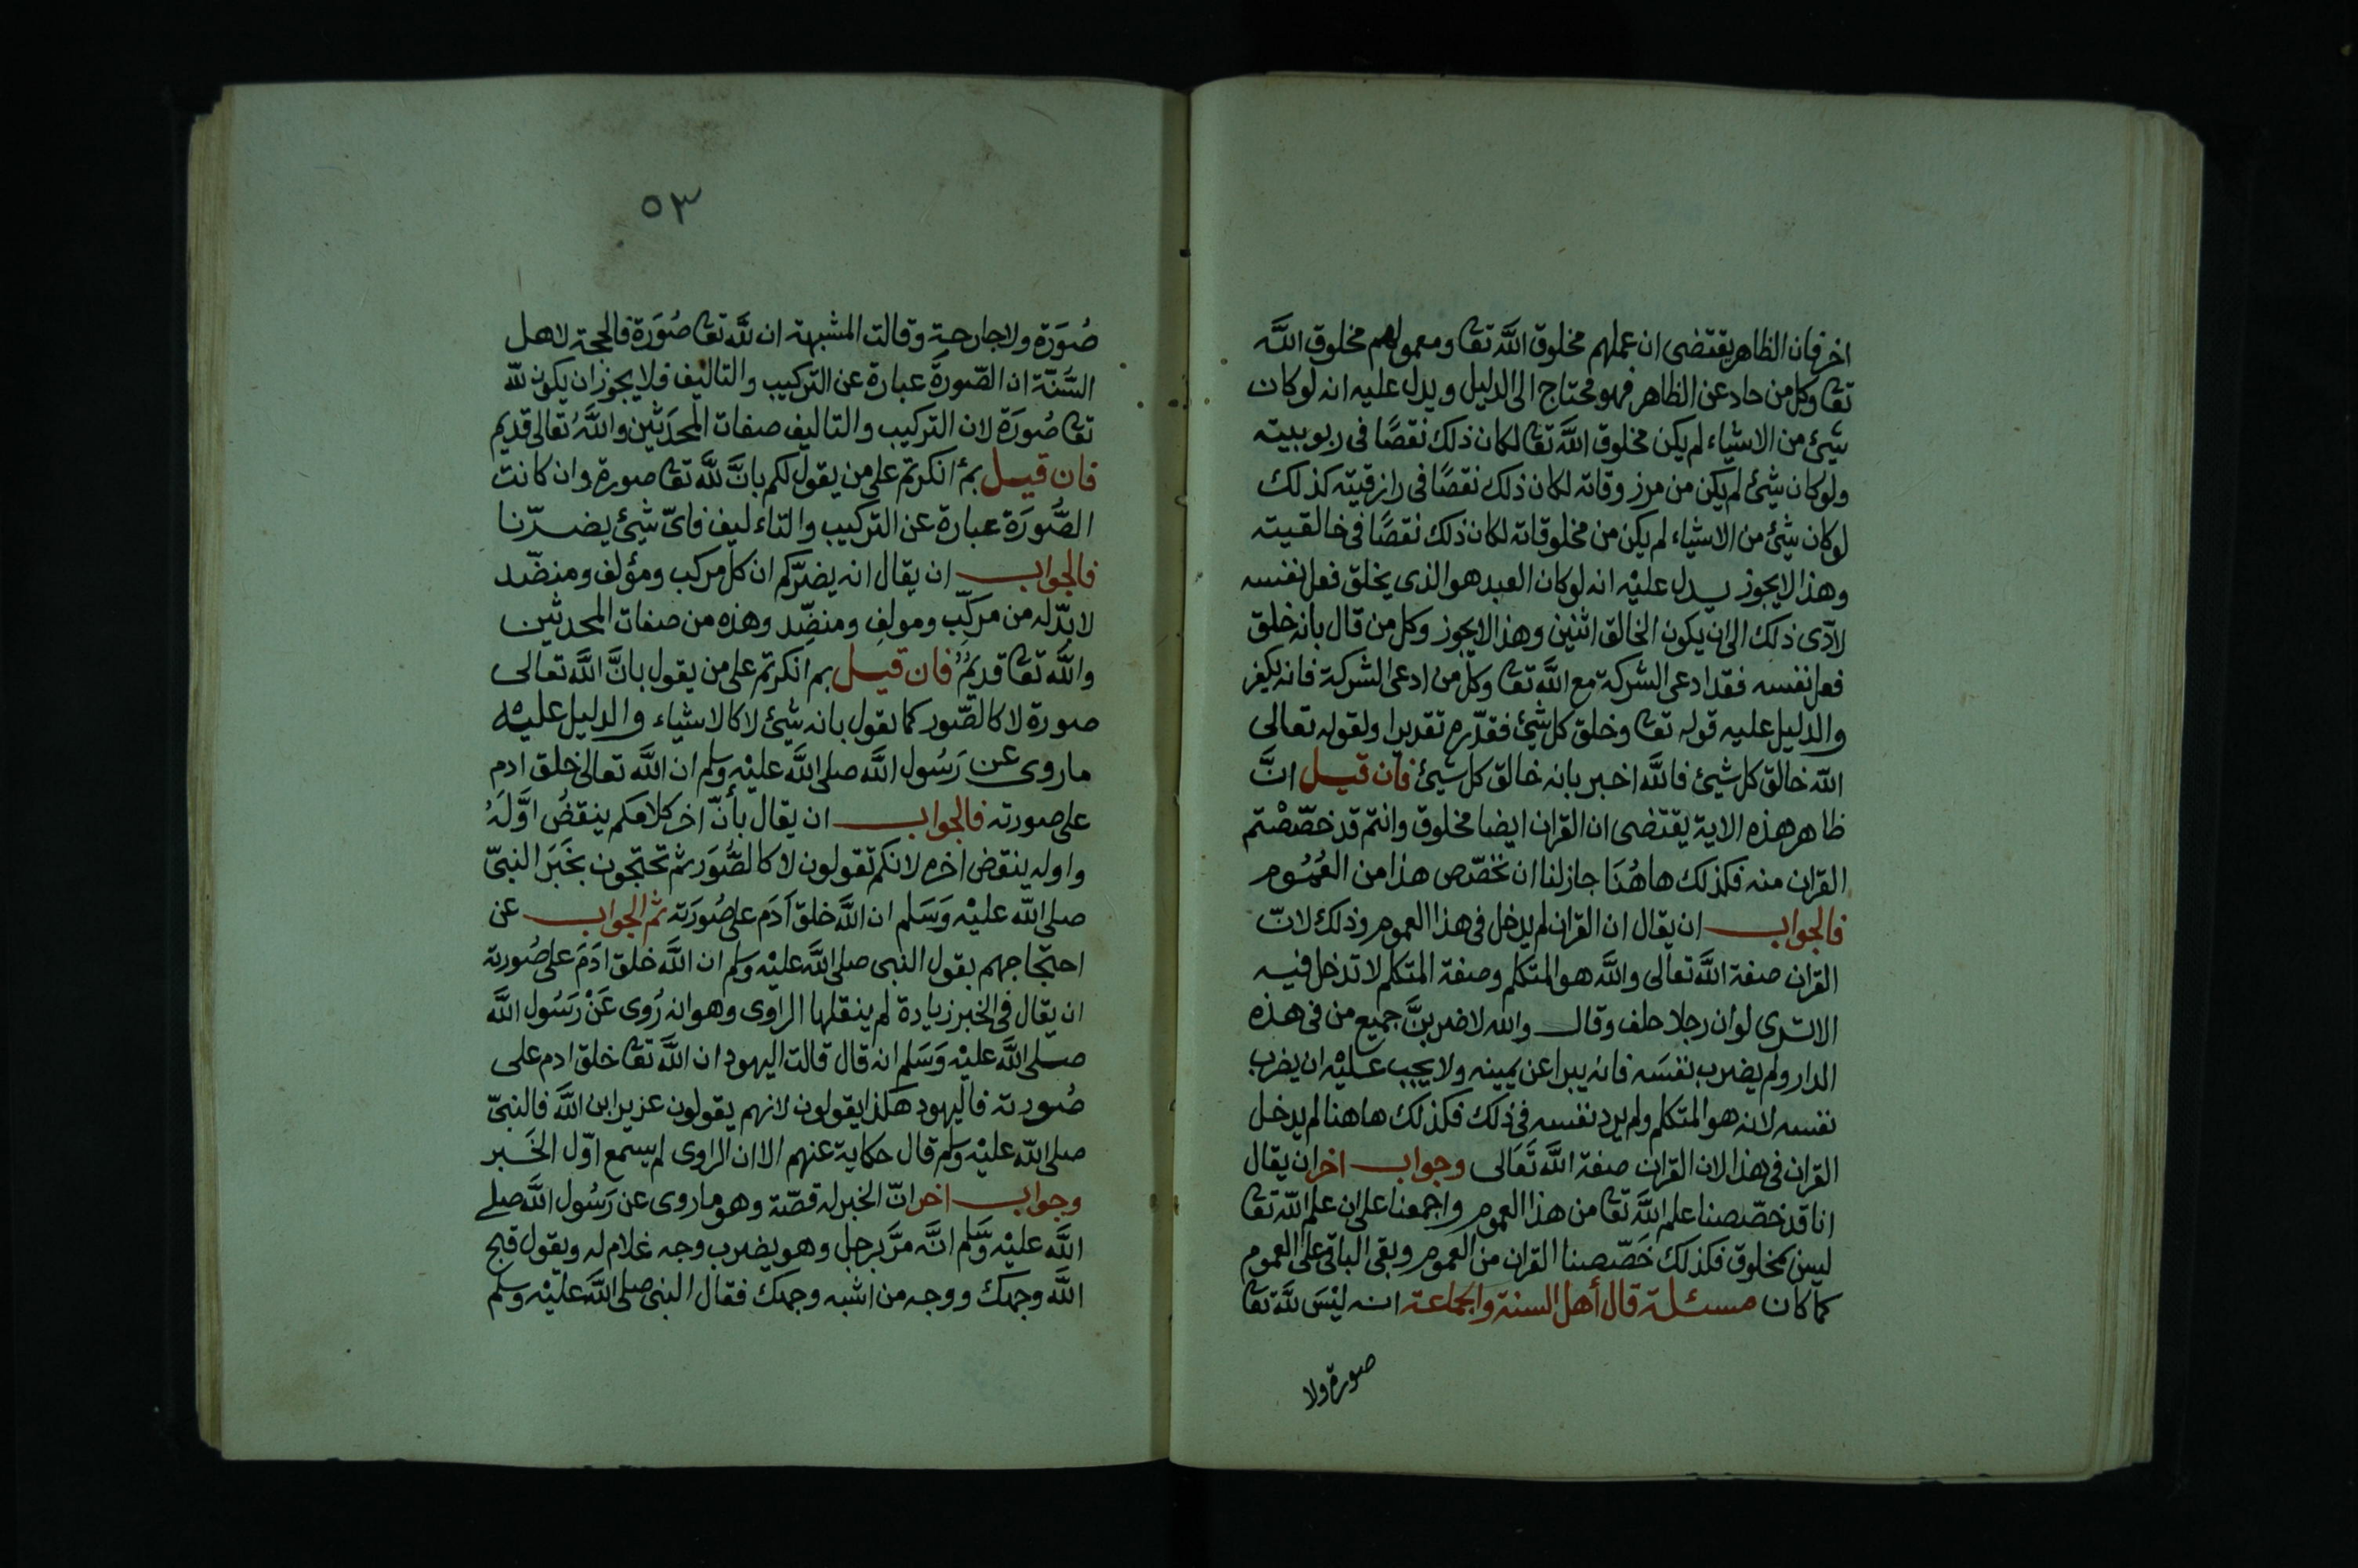 اخر فان الظاهر يقتضى ان عملهم مخلوق اللَّه تعا ومعمولهم مخلوق اللَّه
تعا وكل من حاد عن الظاهر فهو محتاج الى الدليل ويدل عليه انه لو كان
شئ من الاشياء لم يكن مخلوق اللَّه تعا لكان ذلك نقصًا فى ربوبيته
ولو كان شئ لم يكن من مرزوقاته لكان ذلك نقصًا فى رازقيته كذلك
لو كان شئ من الاشياء لم يكن من مخلوقاته لكان ذلك نقصًا فى خالقيته
وهذا لا يجوز يدل عليْه انه لو كان العبد هو الذى يخلق فعل نفسه
لادّى ذلك الى ان يكون الخالق اثنين وهذا لا يجوز وكل من قال بأنه خلق
فعل نفسه فقد ادعى الشركة مع اللَّه تعا وكل من ادعى الشركة فانه يكفر
والدليل عليه قوله تعا وخلق كل شئ فقدّره تقديرا ولقوله تعالى
اللّه خالق كل شئ فاللَّه اخبر بانه خالق كل شئ فان قيل انَّ
ظاهر هذه الاية يقتضى ان القران ايضا مخلوق وانتم قد خصّصْتم
القران منه فكذلك هاهُنَا جاز لنا ان نخصّص هذا من العُمُوم
فالجواب ان يقال ان القران لم يدخل فى هذا العموم وذلك لانّ
القران صفة اللَّه تعالى واللَّه هو المتكلم وصفة المتكلم لا تدخل فيه
الا ترى لو ان رجلا حلف وقال واللّه لاضربنَّ جميع من فى هذه
الدار ولم يضرب نفسَه فانه يبرا عن يمينه ولا يجب عليْه ان يضرب
نفسه لانه هو المتكلم ولم يرد نفسه فى ذلك فكذلك هاهنا لم يدخل
القران فى هذا لان القران صفة اللَّه تَعَالى وجواب اخر ان يقال
انا قد خصّصنا علم اللَّه تعا من هذا العموم واجمعنا على ان علم اللّه تعا
ليس بمخلوق فكذلك خَصّصنا القران من العموم وبقى الباقى على العموم
كما كان مسئلة قال أهل السنة والجماعة انه ليْسَ للَّه تعا
صورة ولا
٥٣
صُوَرَة ولا جارحة وقالت المشبهة ان للَّه تعا صُوَرَة فالحجة لاهل
السُّنّة ان الصّورَة عبارة عن التركيب والتاليف فلا يجوز ان يكون للّه
تعا صُورَة لان التركيب والتاليف صفات المحدَثين واللَّهُ تعالى قديم
فان قيل بمَ انكرتم على من يقول لكم بانَّ للَّه تعا صورة وان كانت
الصُّورَة عبارة عن التركيب والتاءليف فاىّ شئ يضرّنا
فالجواب ان يقال انه يضرّكم ان كل مركب ومؤلف ومنضّد
لا بدّ له من مركِّب ومولف ومنضِّد وهذه من صفات المحدثين
واللَّه تعا قديمٌ فان قيل بم انكرتم على من يقول بانَّ اللَّه تعالى
صورة لا كالصّور كما نقول بانه شئ لا كالاشياء والدليل عليْه
ما روى عن رَسُول اللَّه صلى اللَّه عليْه وسلم ان اللَّه تعالى خلق ادم
على صورته فالجواب ان يقال بأنّ اخر كلامكم ينقضُ اوَّلَهُ
واوله ينقض اخره لانكم تقولون لا كالصُّوَر ثم تحتجون بخَبَر النبىّ
صلى اللّه عليْه وَسَلم ان اللَّه خلق آدَم على صُورَته ثم الجواب عن
احتجاجهم بقول النبى صلى اللَّه عليْه وسلم ان اللَّه خلق ادَمَ على صُورته
ان يقال فى الخبر زيادة لم ينقلها الراوى وهو انه رُوى عَنْ رَسُول اللَّه
صلى اللَّه عليْه وَسَلم انه قال قالت اليهود ان اللَّه تعا خلق ادم على
صُورته فاليهود هكذا يقولون لانهم يقولون عزير ابن اللَّه فالنبىّ
صلى اللّه عليْه وسلم قال حكاية عنهم الا ان الراوى لم يسمع اوّل الخَبر
وجواب اخر انّ الخبر له قصّة وهو ما روى عن رَسُول اللَّه صلى
اللَّه عليْه وسَلم انَّه مرَّ برجل وهو يضرب وجه غلام له ويقول قبح
اللَّه وجهك ووجه من اشبه وجهك فقال النبى صلى اللَّه عليْه وسلم